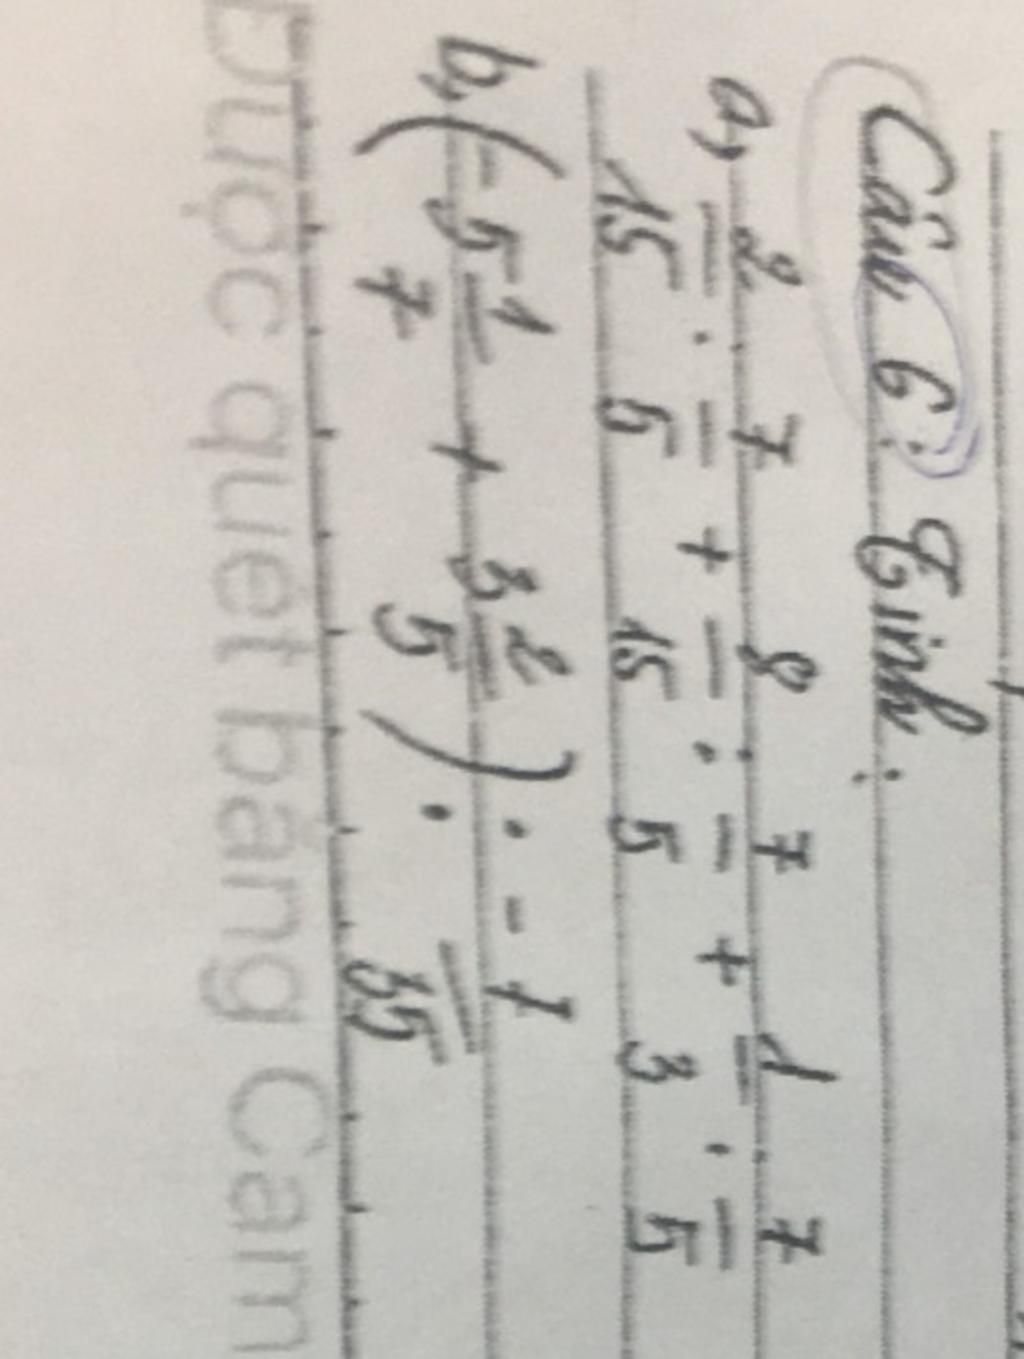 Câu 6: Tính:
a, 2/15 : 7/5 + 8/15 : 7/5 + 1/3 : 7/5
b, (-5 1/7 + 3 2/5) : -1/35
Được quét bằng Cam